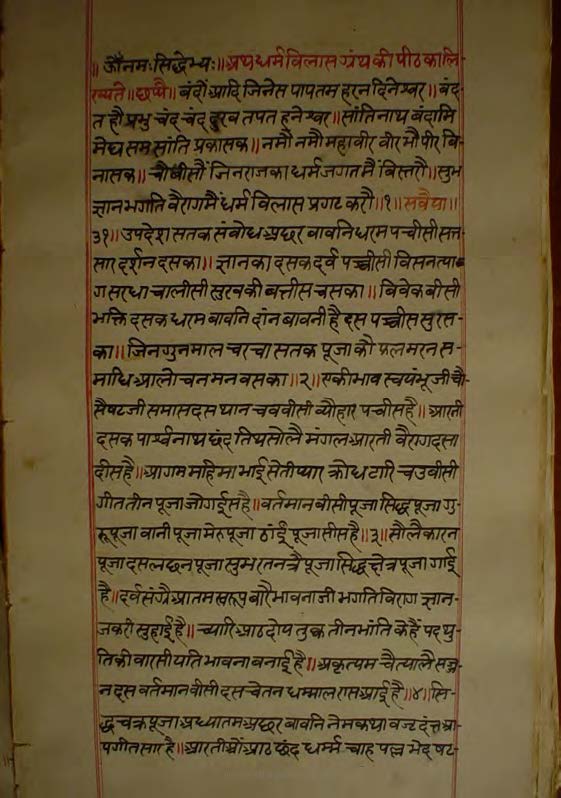 ॥ ॐनमःसिद्धेभ्यः॥ अथधर्मविलासग्रंथकीपीठकालि
ख्यते॥ छप्पै॥ बंदौंआदिजिनेसपापतमहरनदिनेश्वर॥ बंद-
तहौंप्रभुचंदचंददुखतपतहनेश्वर॥ सांतिनाथबंदामि
मेघसमसांतिप्रकासक॥ नमौंनमौंमहावीरवीरभौपीरबि-
नासक॥ चौबीसौंजिनराजकाधर्मजगतमैंबिस्तरौ॥ सुभ
ज्ञानभगतिवैरागमैंधर्मविलासप्रगटकरौ॥१॥ सवैया॥
३१॥ उपदेशसतकसंबोधअछरबावनिधरमपचीसीसत-
सारदर्शनदसका॥ ज्ञानकादसकदर्वपच्चीसीविसनत्या-
गसरधाचालीसीसुखकीबत्तीसचसका॥ बिवेकबीसी
भक्तिदसकधरमबावनिदांनबावनीहैदसपच्चीससुरस-
का॥ जिनगुनमालचरचासतकपूजाकौफलमरनस-
माधिआलोचनमनवसका॥२॥ एकीभावस्वयंभूजीचौ-
सैषटजीसमासदसथानचववीसीव्यौहारपचीसहै॥ आरती
दसकपार्श्वनाथछंदतिथसोलैमंगलआरतीवैरागदसा
दीसहै॥ आगममहिमाभाईसेतीप्यारक्रोधटारिचउवीसी
गीततीनपूजाजोगईसहै॥ वर्तमानबीसीपूजासिद्धपूजागु-
रुपूजावानीपूजामेरुपूजाठांईंपूजासीसहै॥३॥ सौलैकारन
पूजादसलछनपूजासुभरतनत्रैपूजासिद्धक्षेत्रपूजागाई
है॥ दर्वसंग्रैआतमस्वरूपबारैभावनाजीभगतिविरागज्ञान-
जकरीसुहाईहै॥ च्यारिआठदोषतुकतीनभांतिकेहैंपदथु-
तिकीवारसीयतिभावनाबनाईहै॥ अकृत्यमचैत्यालैसज्ज-
नदसवर्तमानवीसीदसचेतनधम्मालरासआईहै॥४॥ सि-
द्धचक्रपूजाअध्यातमअछरबावनिनेमकथावज्रदंतआ-
पगीतसारहै॥ आरतीओंआठछंदधर्मचाहपल्लभेदषट-